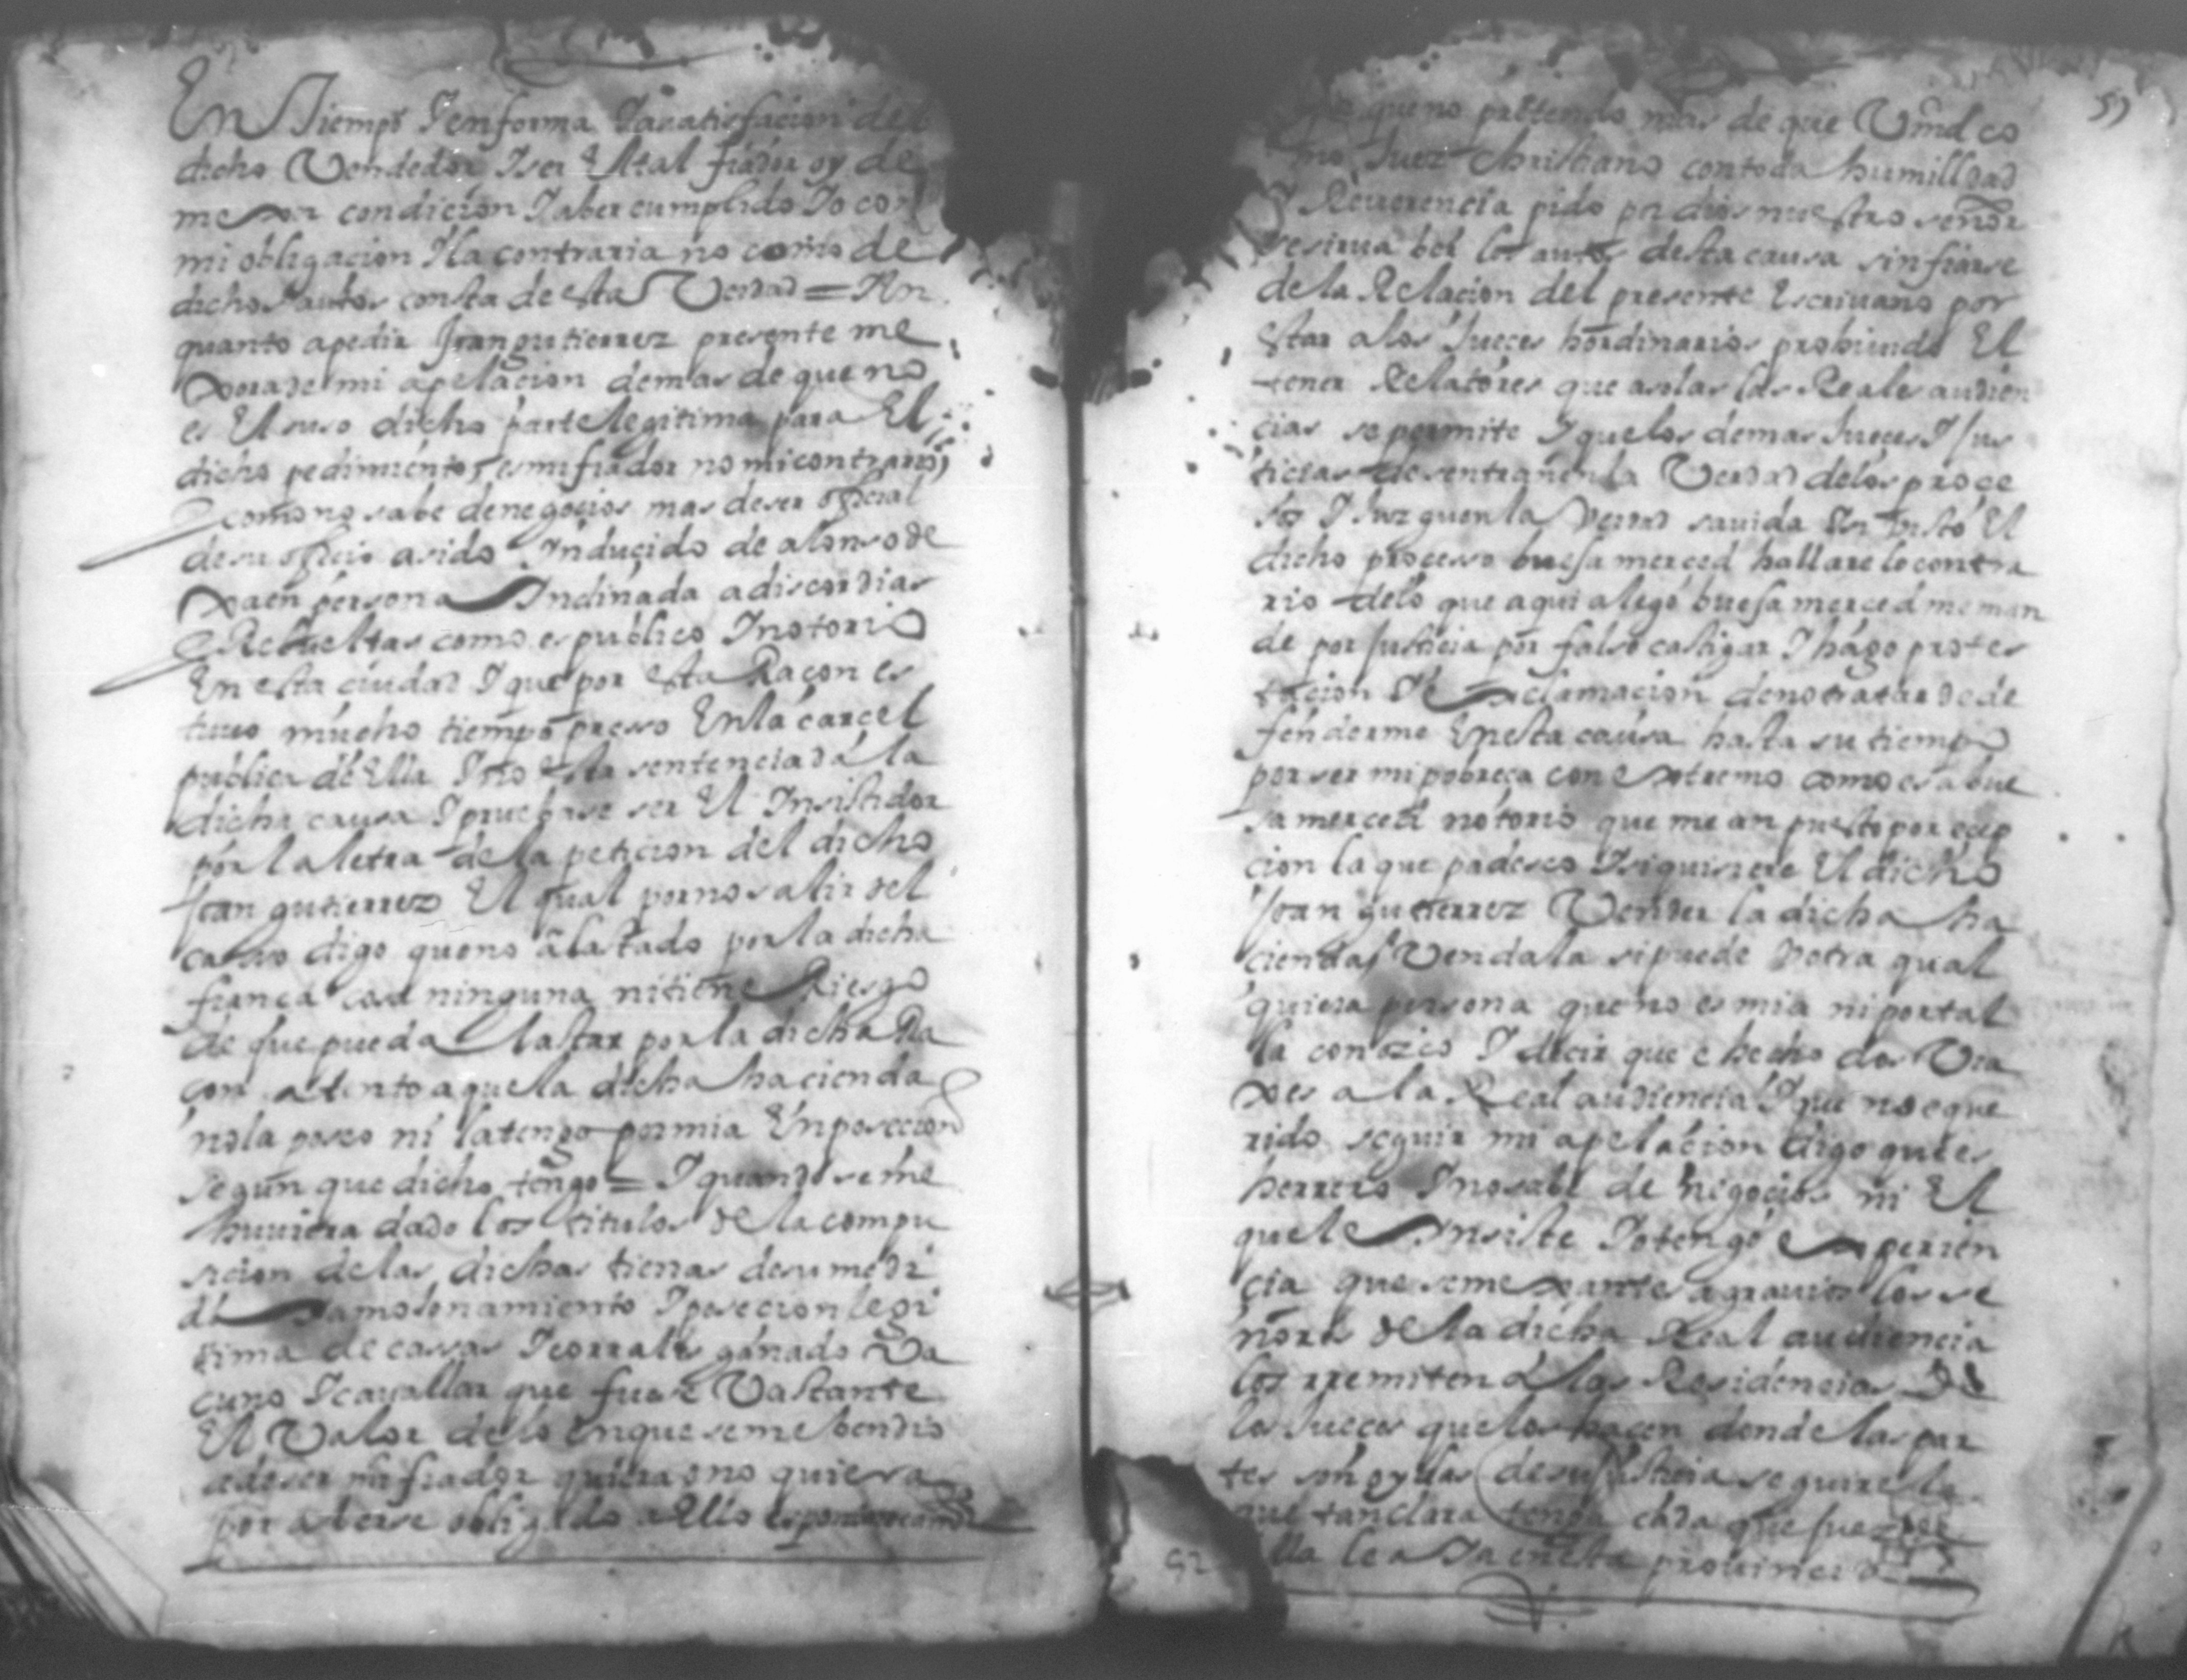 En Tiempo I enforma I asatisfacion del
dicho Vendedor I ser El tal fiador oy de
mexor condicion I aber cumplido Io con
mi obligacion I la contraria no como de
dichos autos consta de esta Verdad = I En
quanto a pedir Joan gutierrez presente me
xora de mi apelacion demas de que no
es El suso dicho parte legitima para El
dicho pedimiento, es mi fiador no mi contrario,
e como no sabe de negocios mas de ser oficial
de su oficio a sido Inducido de alonso de
xaen persona Inclinada a discordias
e Rebueltas como es publico I notorio
En esta ciudad I que por esta Raçon es
tuvo mucho tiempo presso En la carcel
publica de Ella I no esta sentenciada la
dicha causa I pruebase ser El Insistidor
por la letra de la peticion del dicho
Joan gutierrez El qual por no salir del
caso digo que no a lastado por la dicha
fiança cosa ninguna ni tiene Riesgo
de que pueda lastar por la dicha Ra
çon atento a que la dicha hacienda
no la poseo ni la tengo por mia En posecion
segun que dicho tengo = I quando se me
huviera dado los titulos de la compu
sicion de las dichas tierras de su medi
da I amoxonamiento I posecion legi
tima de casas I corrales ganado Va
cuno I cavallar que fuese Vastante
El Valor de lo En que se me bendio
a de ser mi fiador quiera o no quiera
por aberse obligado a Ello espontaneamte
59
que no pretendo mas de que Vmd co
mo Juez christiano con toda humilldad
I Reverencia pido por dios nuestro señor
se sirva ber los autos desta causa sin fiarse
de la Relacion del presente Escrivano por
estar a los Jueces hordinarios prohivido El
tener Relatores que a solas las Reales audien
cias se permite I que los demas Jueces I Jus
ticias desentrañen la Verdad de los proce
sos I Juzguen la Verdad savida En Visto El
dicho processo buesa merced hallare lo contra
rio de lo que aqui alego buesa merced me man
de por Justicia por falso castigar I hago protes
tacion I Exclamacion de no tratar de de
fenderme En esta causa hasta su tiempo
por ser mi pobreça con extremo como es a bue
sa merced notorio que me an puesto por ecep
cion la que padesco I si quisiere El dicho
Joan gutierrez Vender la dicha ha
cienda Vendala si puede I otra qual
quiera persona que no es mia ni por tal
la conozco I decir que e hecho dos Via
xes a la Real audiencia I que no e que
rido seguir mi apelacion digo que es
herrero I no sabe de negocios ni El
que le Insiste Io tengo experien
cia que semexantes agravios los se
ñores de la dicha Real audiencia
los rremiten a las Residencias de
los Jueces que los hacen donde las par
tes son oydas de su Justicia seguire la
que tan clara tengo cada que fuere
lla lea I a en esta provincia
52